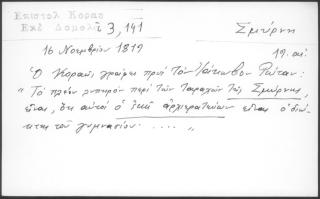 Επιστολ Κοραο
Εκδ Δαμαλᾶ τ 3, 141
Σμύρνη
16 Νοεμβρίου 1819
19. αι.
Ὁ Κοραῆς γράφει πρὸς τὸν Ἰάκωβον Ρώταν:
"Τὸ πλέον λυπηρὸν περὶ τῶν ταραχῶν τῆς Σμύρνης,
εἶναι, ὅτι αὐτοῦ ὁ ἐκεῖ ἀρχιερατεύων εἶναι ὁ διώ-
κτης τοῦ γυμνασίου. .... "